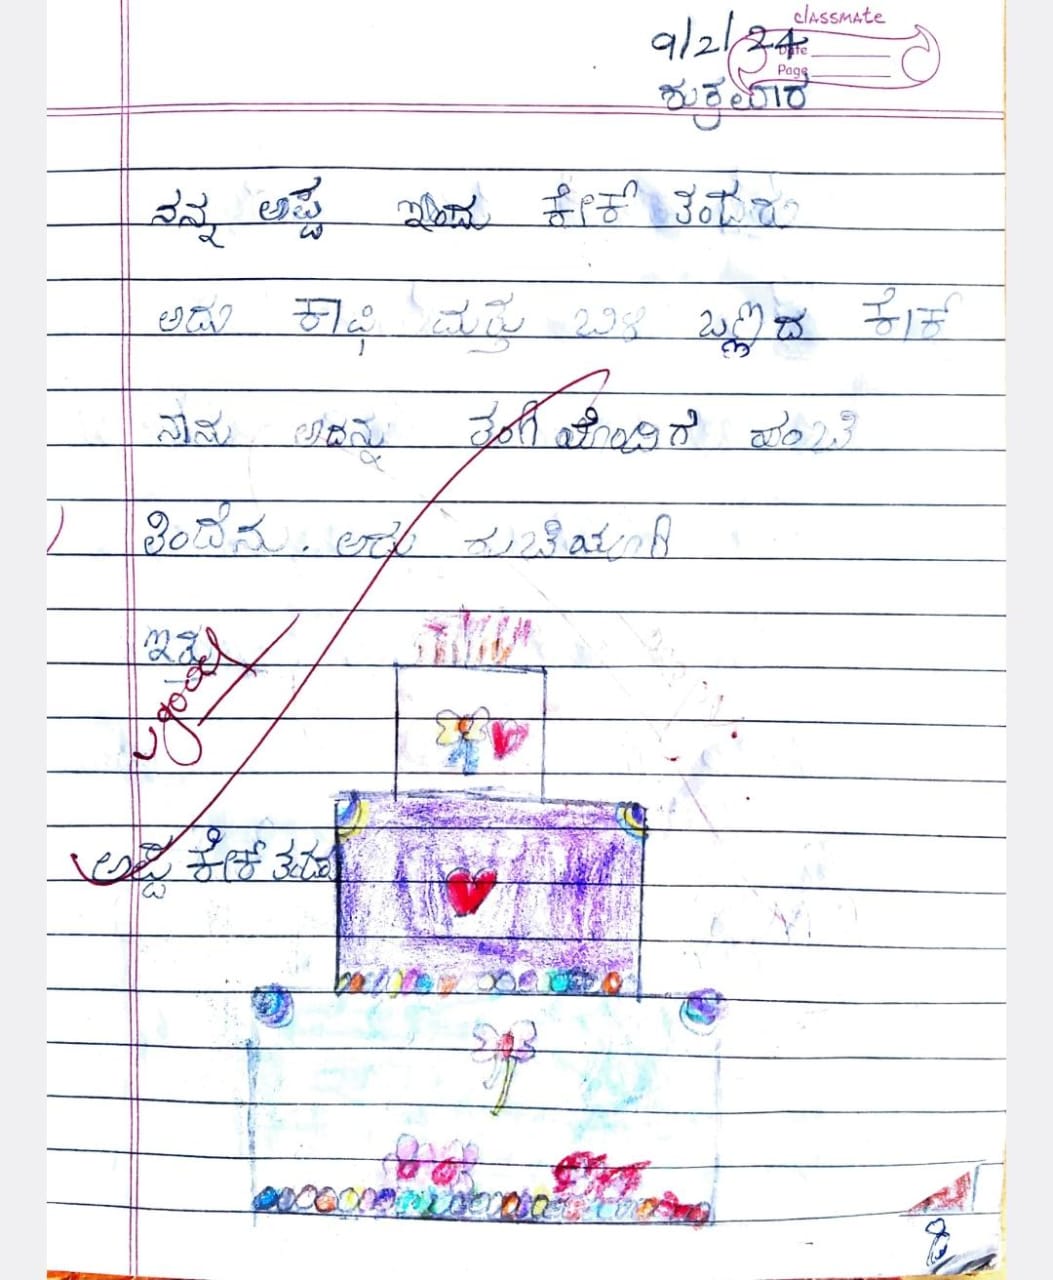 classmate
Date
Page
9/2/24
ಶುಕ್ರವಾರ
ನನ್ನ ಅಪ್ಪ ಇಂದು ಕೇಕ್ ತಂದರು
ಅದು ಕಾಫಿ ಮತ್ತು ಬಿಳಿ ಬಣ್ಣದ ಕೇಕ್
ನಾನು ಅದನ್ನು ತಂಗಿಯೊಂದಿಗೆ ಹಂಚಿ
ತಿಂದೆನು. ಅದು ರುಚಿಯಾಗಿ
ಇತ್ತು
good
ಅಪ್ಪ ಕೇಕ್ ತಂದರು